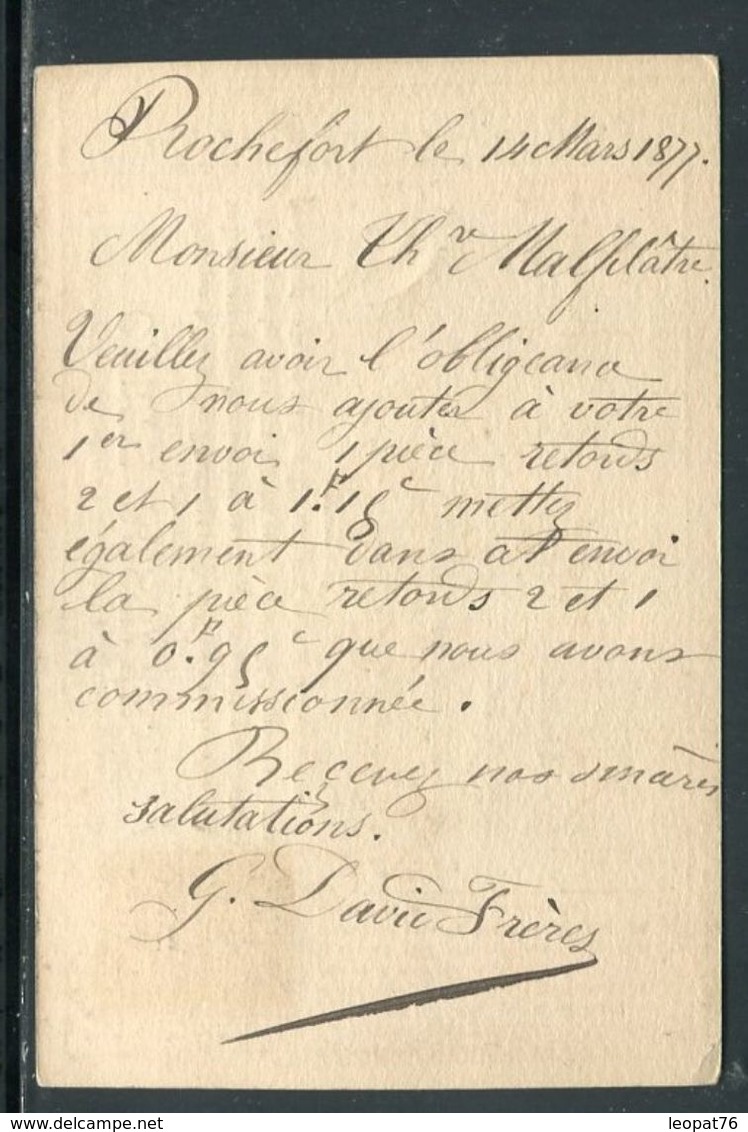 Rochefort le 14 Mars 1877.
Monsieur Th r Malfilâtre.
Veuillez avoir l'obligeance
de nous ajouter à votre
1er envoi 1 pièce retords
2 et 1 à 1.F15c mettez
également dans cet envoi
la pièce retords 2 et 1
à 0.F95c que nous avons
commissionnée.
Recevez nos sincères
salutations.
G. David Frères
leopat76
www.delcampe.net